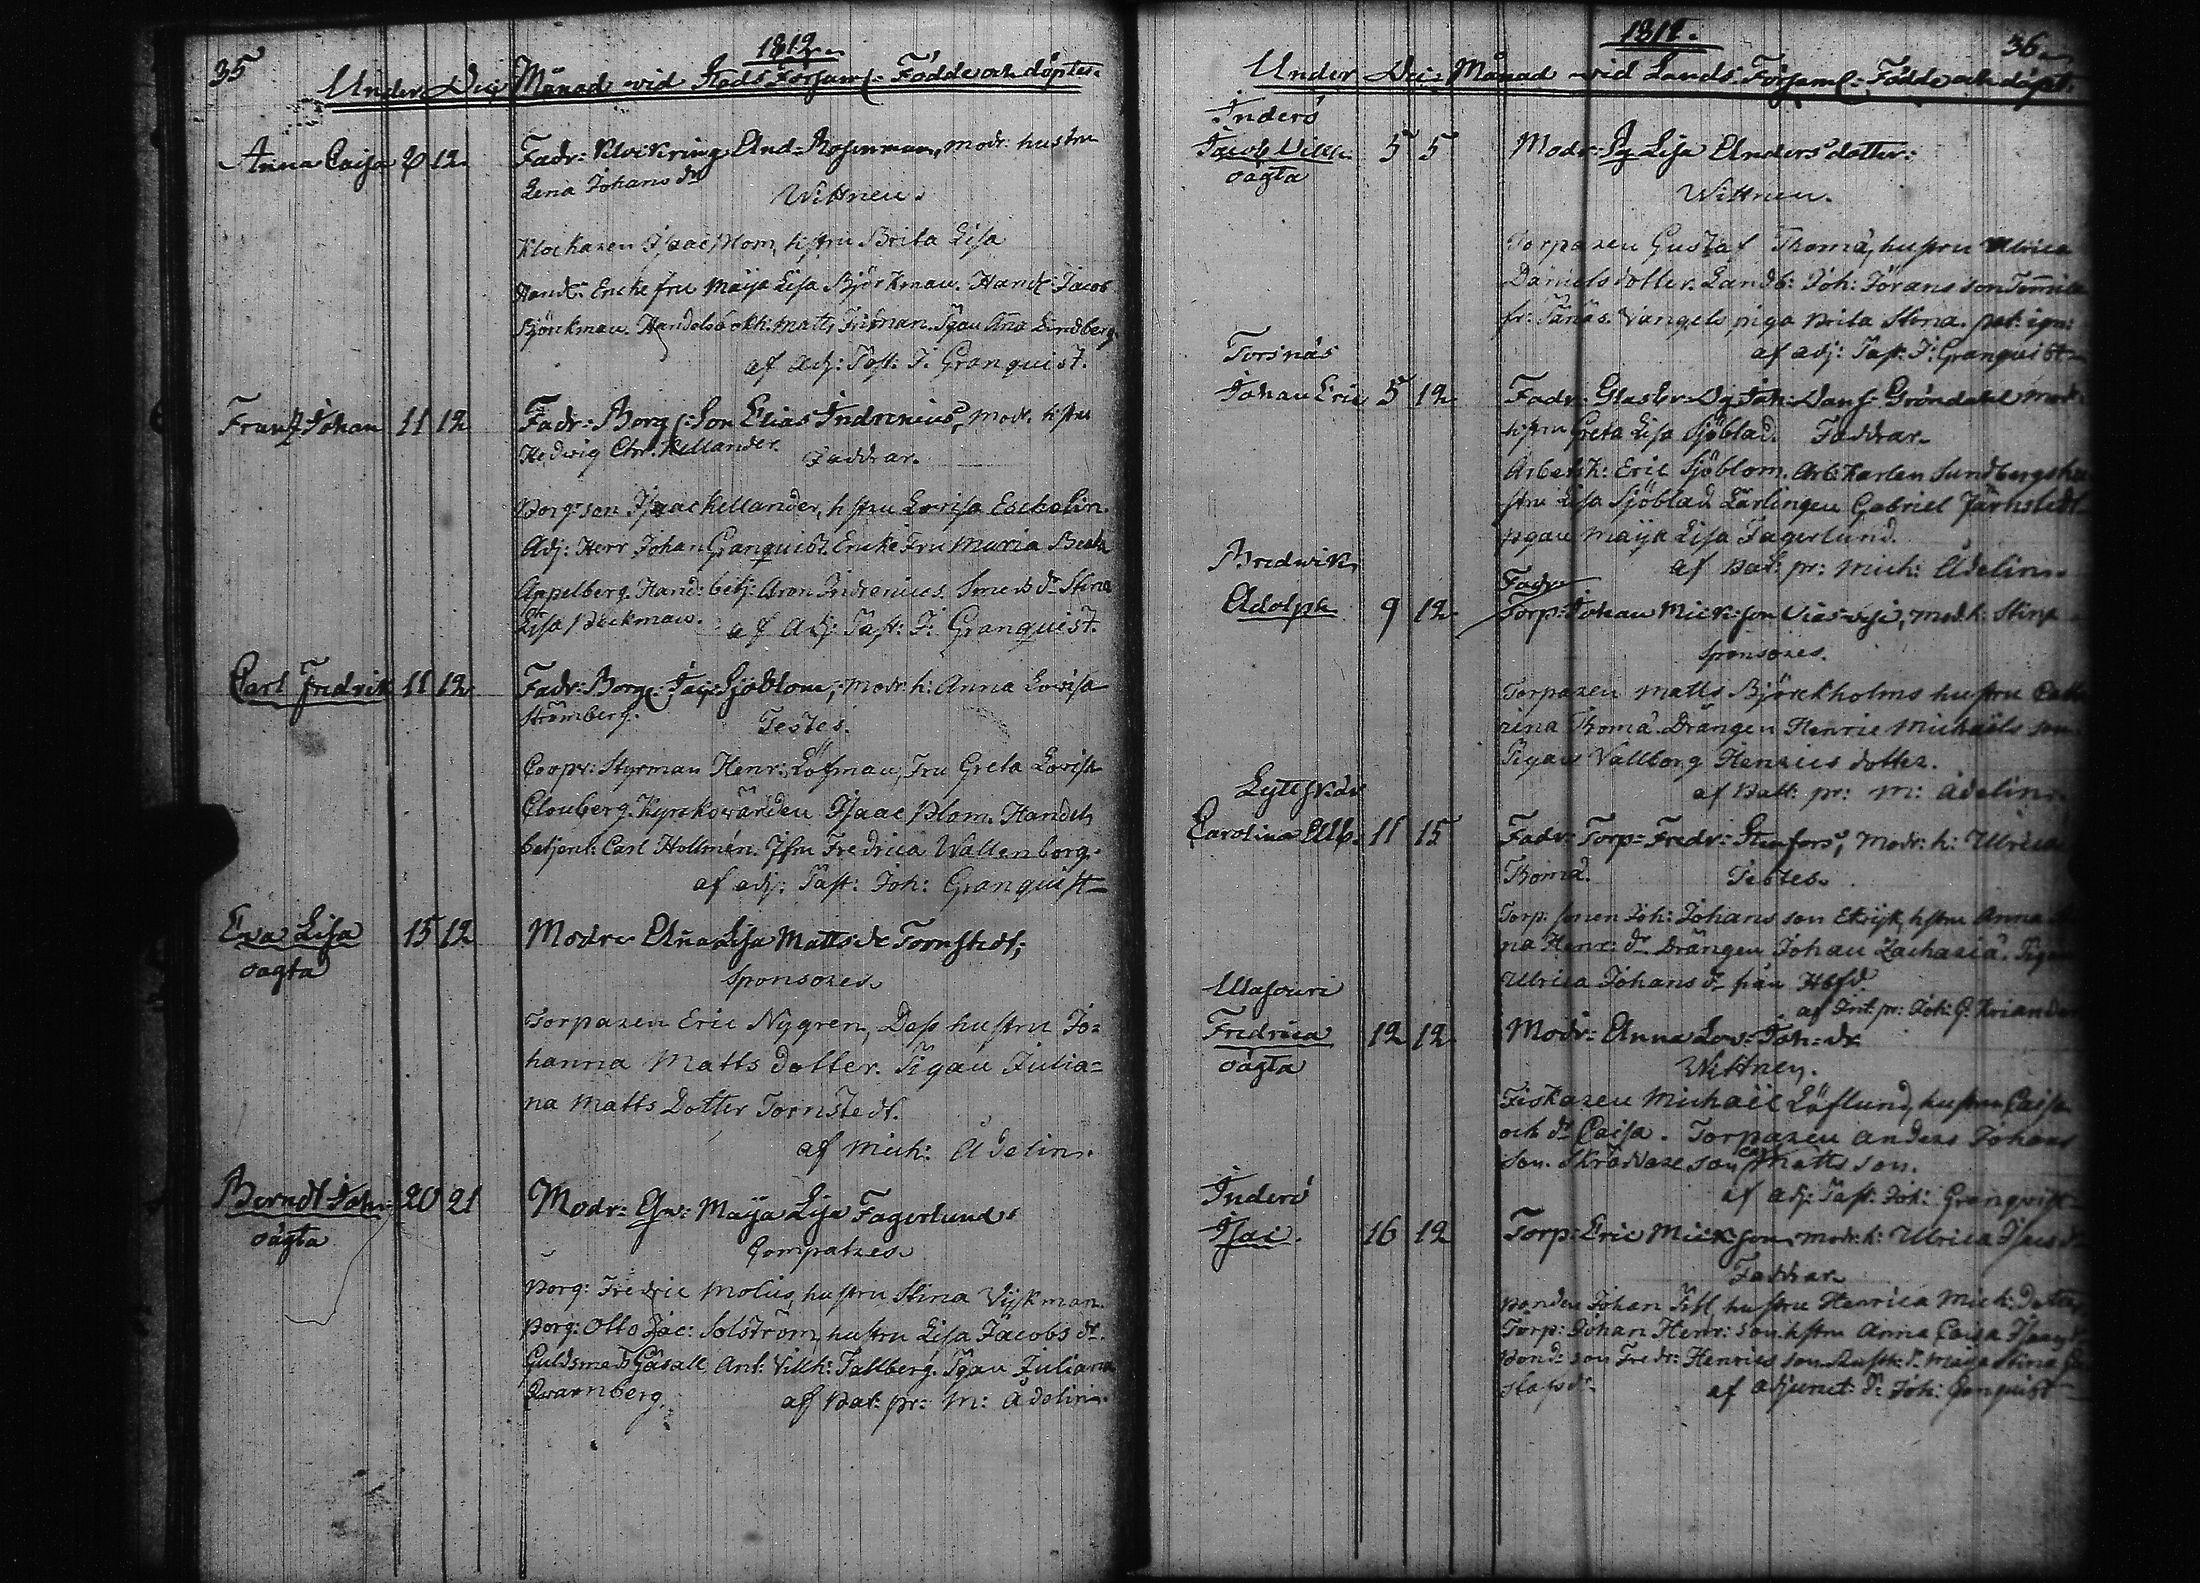 35
1812.
Under Dec: Månad vid Stads Församl: Födde och döpte.
Anna Caisa 12 Fadr: And: Rosenman, Modr. hustru
Lena Johans dr
Wittnen.
Klockaren Isaac Blom, h:stru Brita Lisa
Handl: Encke fru Maija Lisa Björkman. Handl: Jacob
Björckman. Matts Friman. Pigan Aña Lindberg.
af Adj: Past: J. Granquist.
Frantz Johan 11 12 Fadr: Borg: Son Elias Indrenius, Modr. h:stru
Hedwig Chr. Kellander.
Faddrar.
Borg: son Isaac Kellander, h:stru Lovisa Eschelin.
Adj: Herr Johan Granquist. Encke Fru Maria Beata
Appelberg. Hand: betj: Aron Indrenius. Smeds dr Stina
Lisa Beckman. af Adj: Past: J: Granquist.
Carl Fredrik 11 12 Fadr: Borg: Sjöblom, Modr. h: Anna Lovisa
Strömberg.
Testes.
Coopv: Styrman Henr: Löfman, Fru Greta Lovisa
Clouberg. Kyrckowärden Isaac Blom. Handels
betjent: Carl Hollmén. Jfru Fredrica Wallenborg.
af adj: Past: Joh: Granquist
Eva Lisa 15 12 Modr: Aña Lisa Matts dr Tornstedt;
oägta
Sponsores.
Torparen Eric Nygren, Dess hustru Jo=
hanna Matts dotter. Pigan Julia=
na Matts Dotter Tornstedt.
af Mich: Adelin.
Berndt Joh: 20 21 Modr: Maija Lisa Fagerlund
oägta
Compatres
Borg: Fredric Molis, hustru Stina Vijkman.
Borg: Otto Jac: Solström, hustru Lisa Jacobs dr.
Guldsmeds Gäsäll Ant: Vilh: Tallberg. Pigan Juliana
Qvarnberg. af Pat: pr: M: Adelin.
36
1812.
Under Dec: Månad vid Lands Församl: Födde och döpt.
Inderö
Jacob Vilh: 5 5 Modr: Pig Lisa Anders dotter:
oägta
Wittnen.
Torparen Gustaf Thomä, hustru Ulrica
Daniels dotter. Landb: Joh: Jörans son
fr: piga Brita Stina.
af adj: Past: J: Granquist
Torsnäs
Johan Eric 5 12 Fadr: Joh: Gröndahl Modr:
h:stru Greta Lisa Sjöblad. Faddrar.
Arbetsk: Eric Sjöblom. Arb: Karlen Sundbergs hu
stru Lisa Sjöblad. Lärlingen Gabriel Järnstedt
pigan Maija Lisa Fagerlund.
af Pat: pr: Mich: Adelin.
Bredwik
Adolph 9 12 Fadr
Torp: Johan Mick:son modr. h: Stina
Sponsores.
Torparen Matts Björckholms hustru Catha
rina Thomä. Drängen Henric Michaëls son.
Pigan Vallborg Henrics dotter.
af Patt: pr: M: Adelin.
Lyttskär
Carolina Ulr. 11 15 Fadr: Torp: Fredr: Stenfors, Modr: h: Ulrica
Thomä.
Testes.
Torp: sonen Joh: Johans son h:stru Anna
na Henr: dr Drängen Johan Zachariä. Pigan
Ulrica Johans dr från
af pr: Joh: G. Kriander
Ulasouri
Fredrica 12 12 Modr: Anna Lov: Joh: dr
oägta
Wittnen.
Fiskaren Michaël Löflund, hustru Caisa
och dr Caisa. Torparen Anders Johans
son. Skräddare son Matts son.
af adj: Past: Joh: Granquist
Inderö
Isac. 16 12 Torp: Eric Mick:son, modr. h: Ulrica Isacs dr
Faddrar
Bonden Johan hustru Henrica Mich: dotter
Torp: Johan Henr: son h:stru Anna Caisa Isaacs
Bond: son Fredr: Henrics son dr Maija Stina
stafs dr. af adjunct: Joh: Granquist